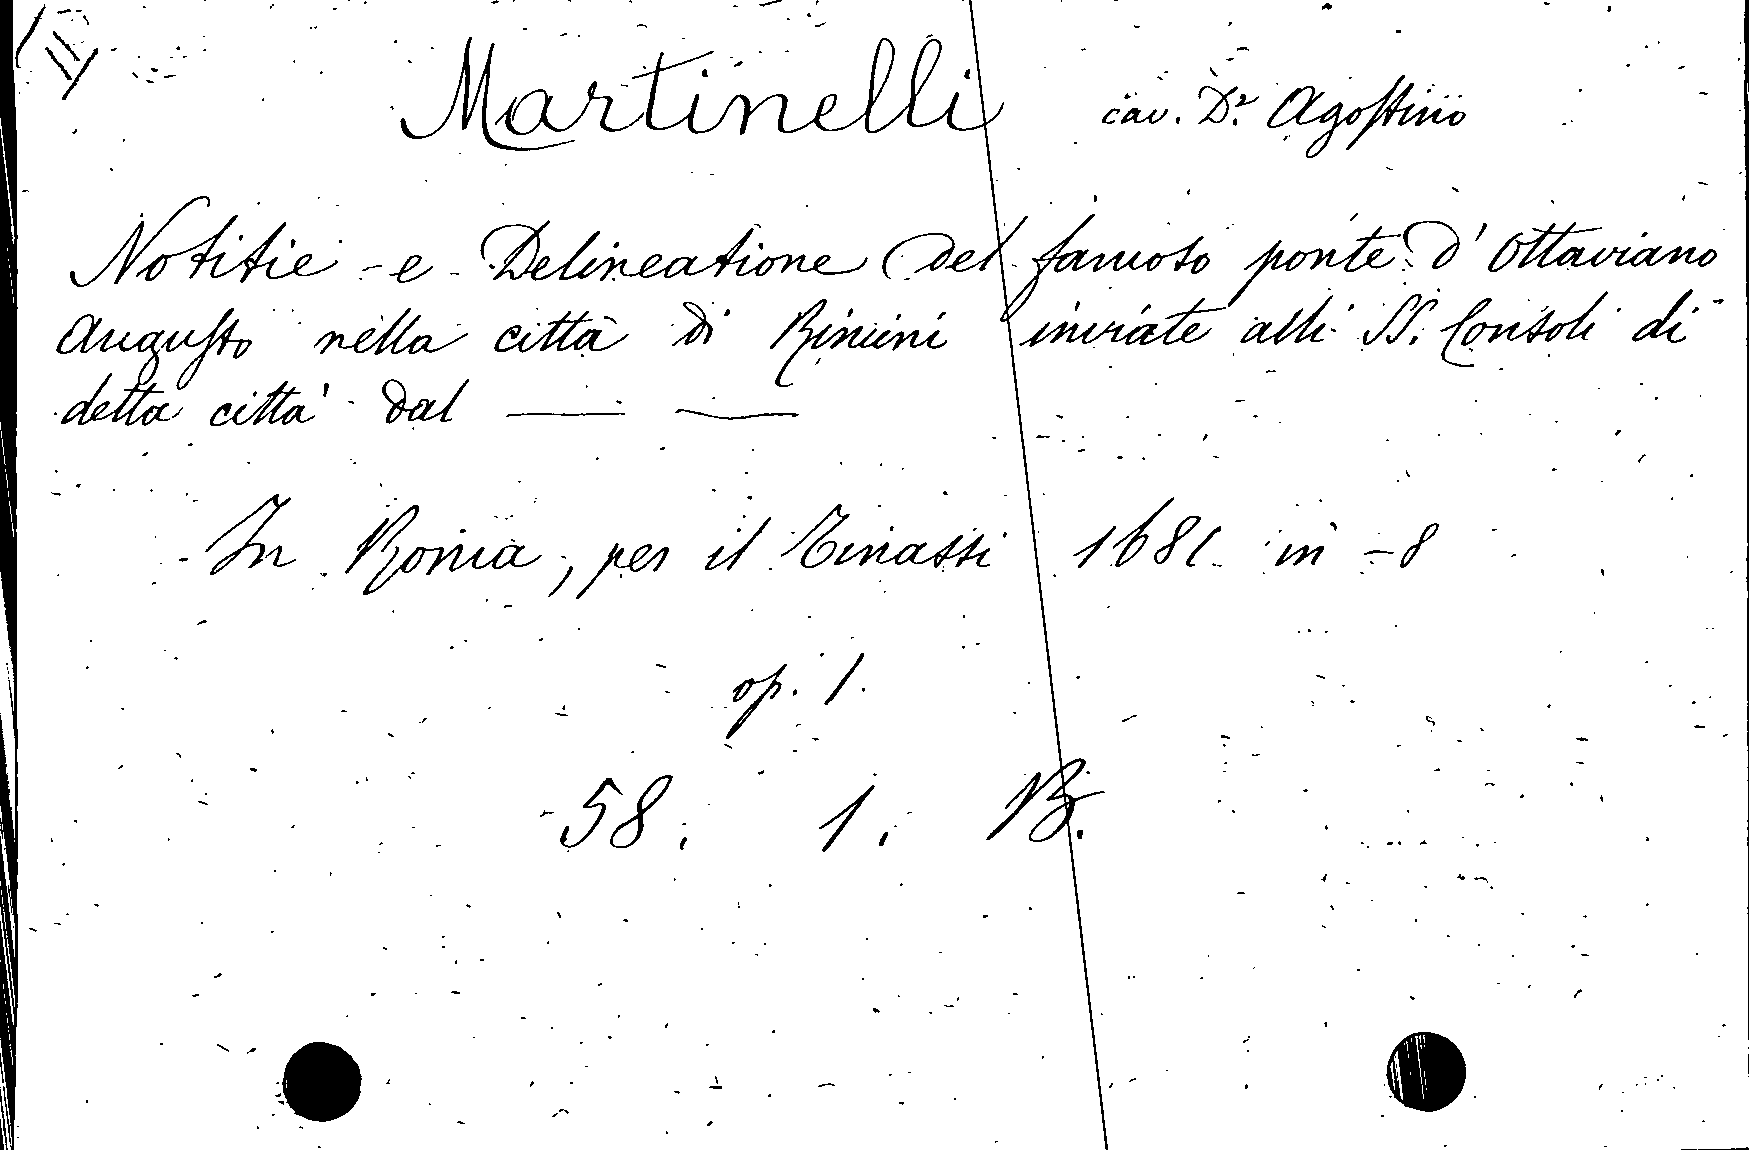 Martinelli cav. Dr. Agostino
Notitie e Delineatione del famoso ponte d'Ottaviano
Augusto nella città di Rimini inviate alli SS. Consoli di
detta città dal —— ——
In Roma, per il Tinassi 1681 in -8
op. 1.
58. 1. B.